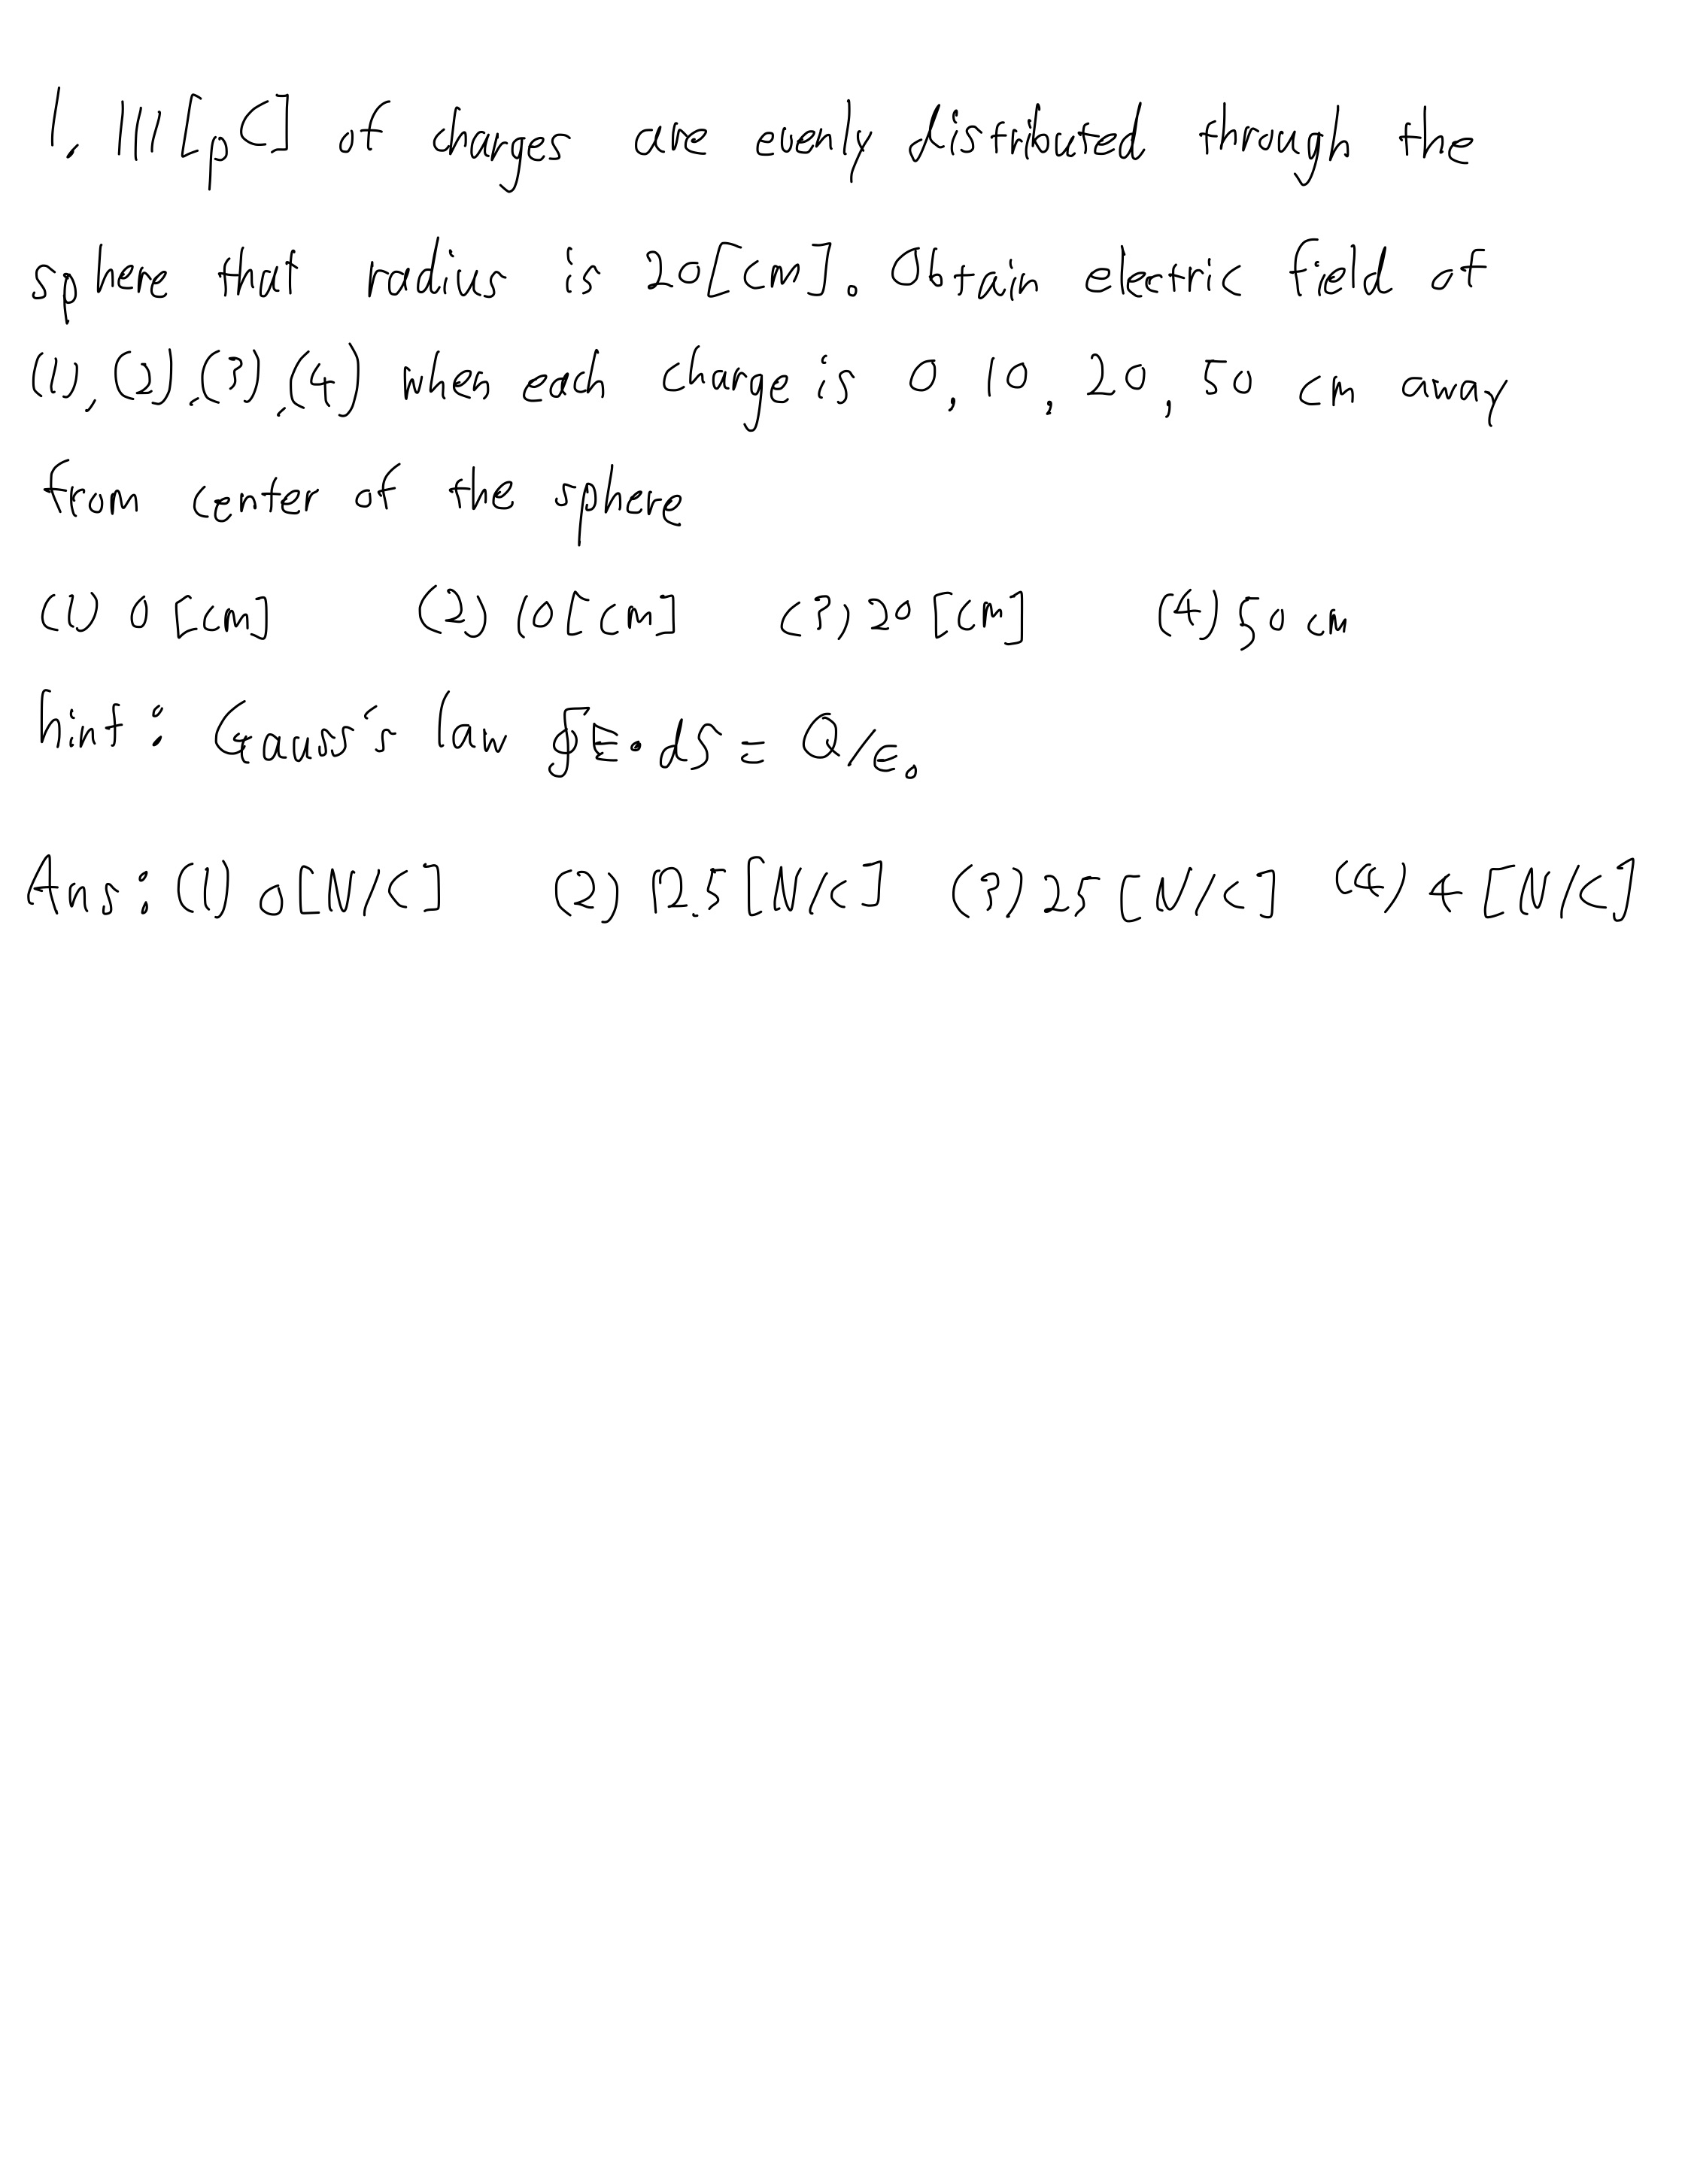 1. 111 [pC] of charges are evenly distributed through the
sphere that radius is 20[cm]. Obtain electric field at
(1), (2), (3), (4) when each charge is 0, 10, 20, 50 cm away
from center of the sphere
(1) 0 [cm] (2) 10 [cm] (3) 20 [cm] (4) 50 cm
hint: Gauss's law ∮E・dS = Q/ε₀
Ans: (1) 0[N/C] (2) 12.5 [N/C] (3) 25 [N/C] (4) 4 [N/C]